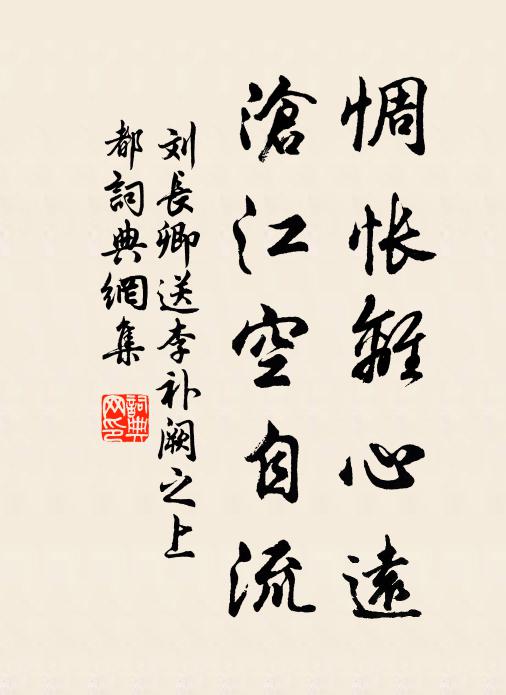 惆怅離心遠
滄江空自流
刘長卿送李补阙之上
都詞典網集
詞典网印